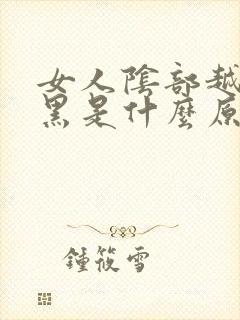 女人陰部越
黑是什麼原
鍾筱雪